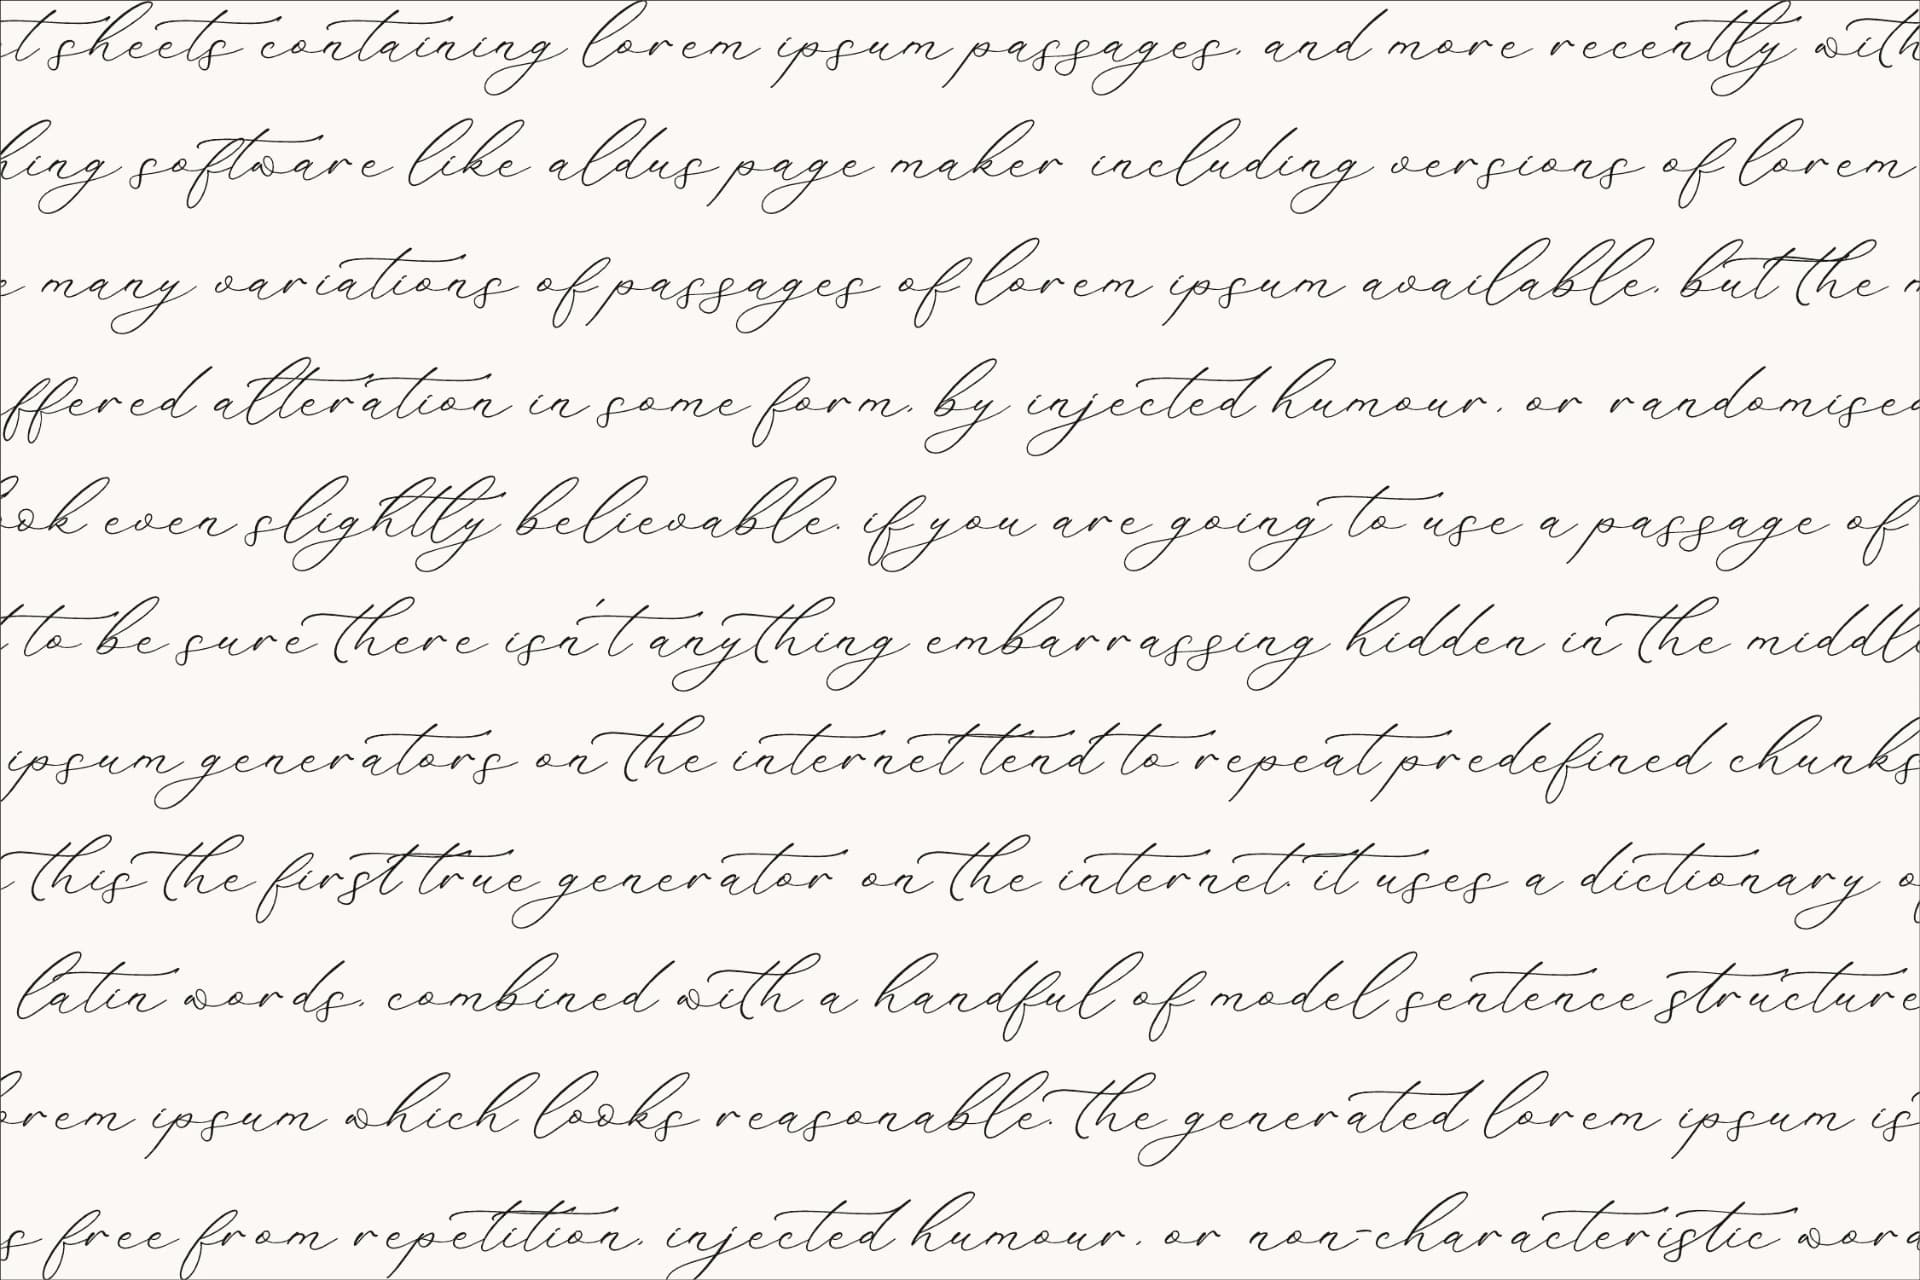 t sheets containing lorem ipsum passages, and more recently with
king software like aldus page maker including versions of lorem
e many variations of passages of lorem ipsum available, but the m
ffered alteration in some form, by injected humour, or randomised
ook even slightly believable. if you are going to use a passage of
t to be sure there isn't anything embarrassing hidden in the middle
ipsum generators on the internet tend to repeat predefined chunks
this the first true generator on the internet. it uses a dictionary of
latin words, combined with a handful of model sentence structure
orem ipsum which looks reasonable. the generated lorem ipsum is
s free from repetition, injected humour, or non-characteristic word